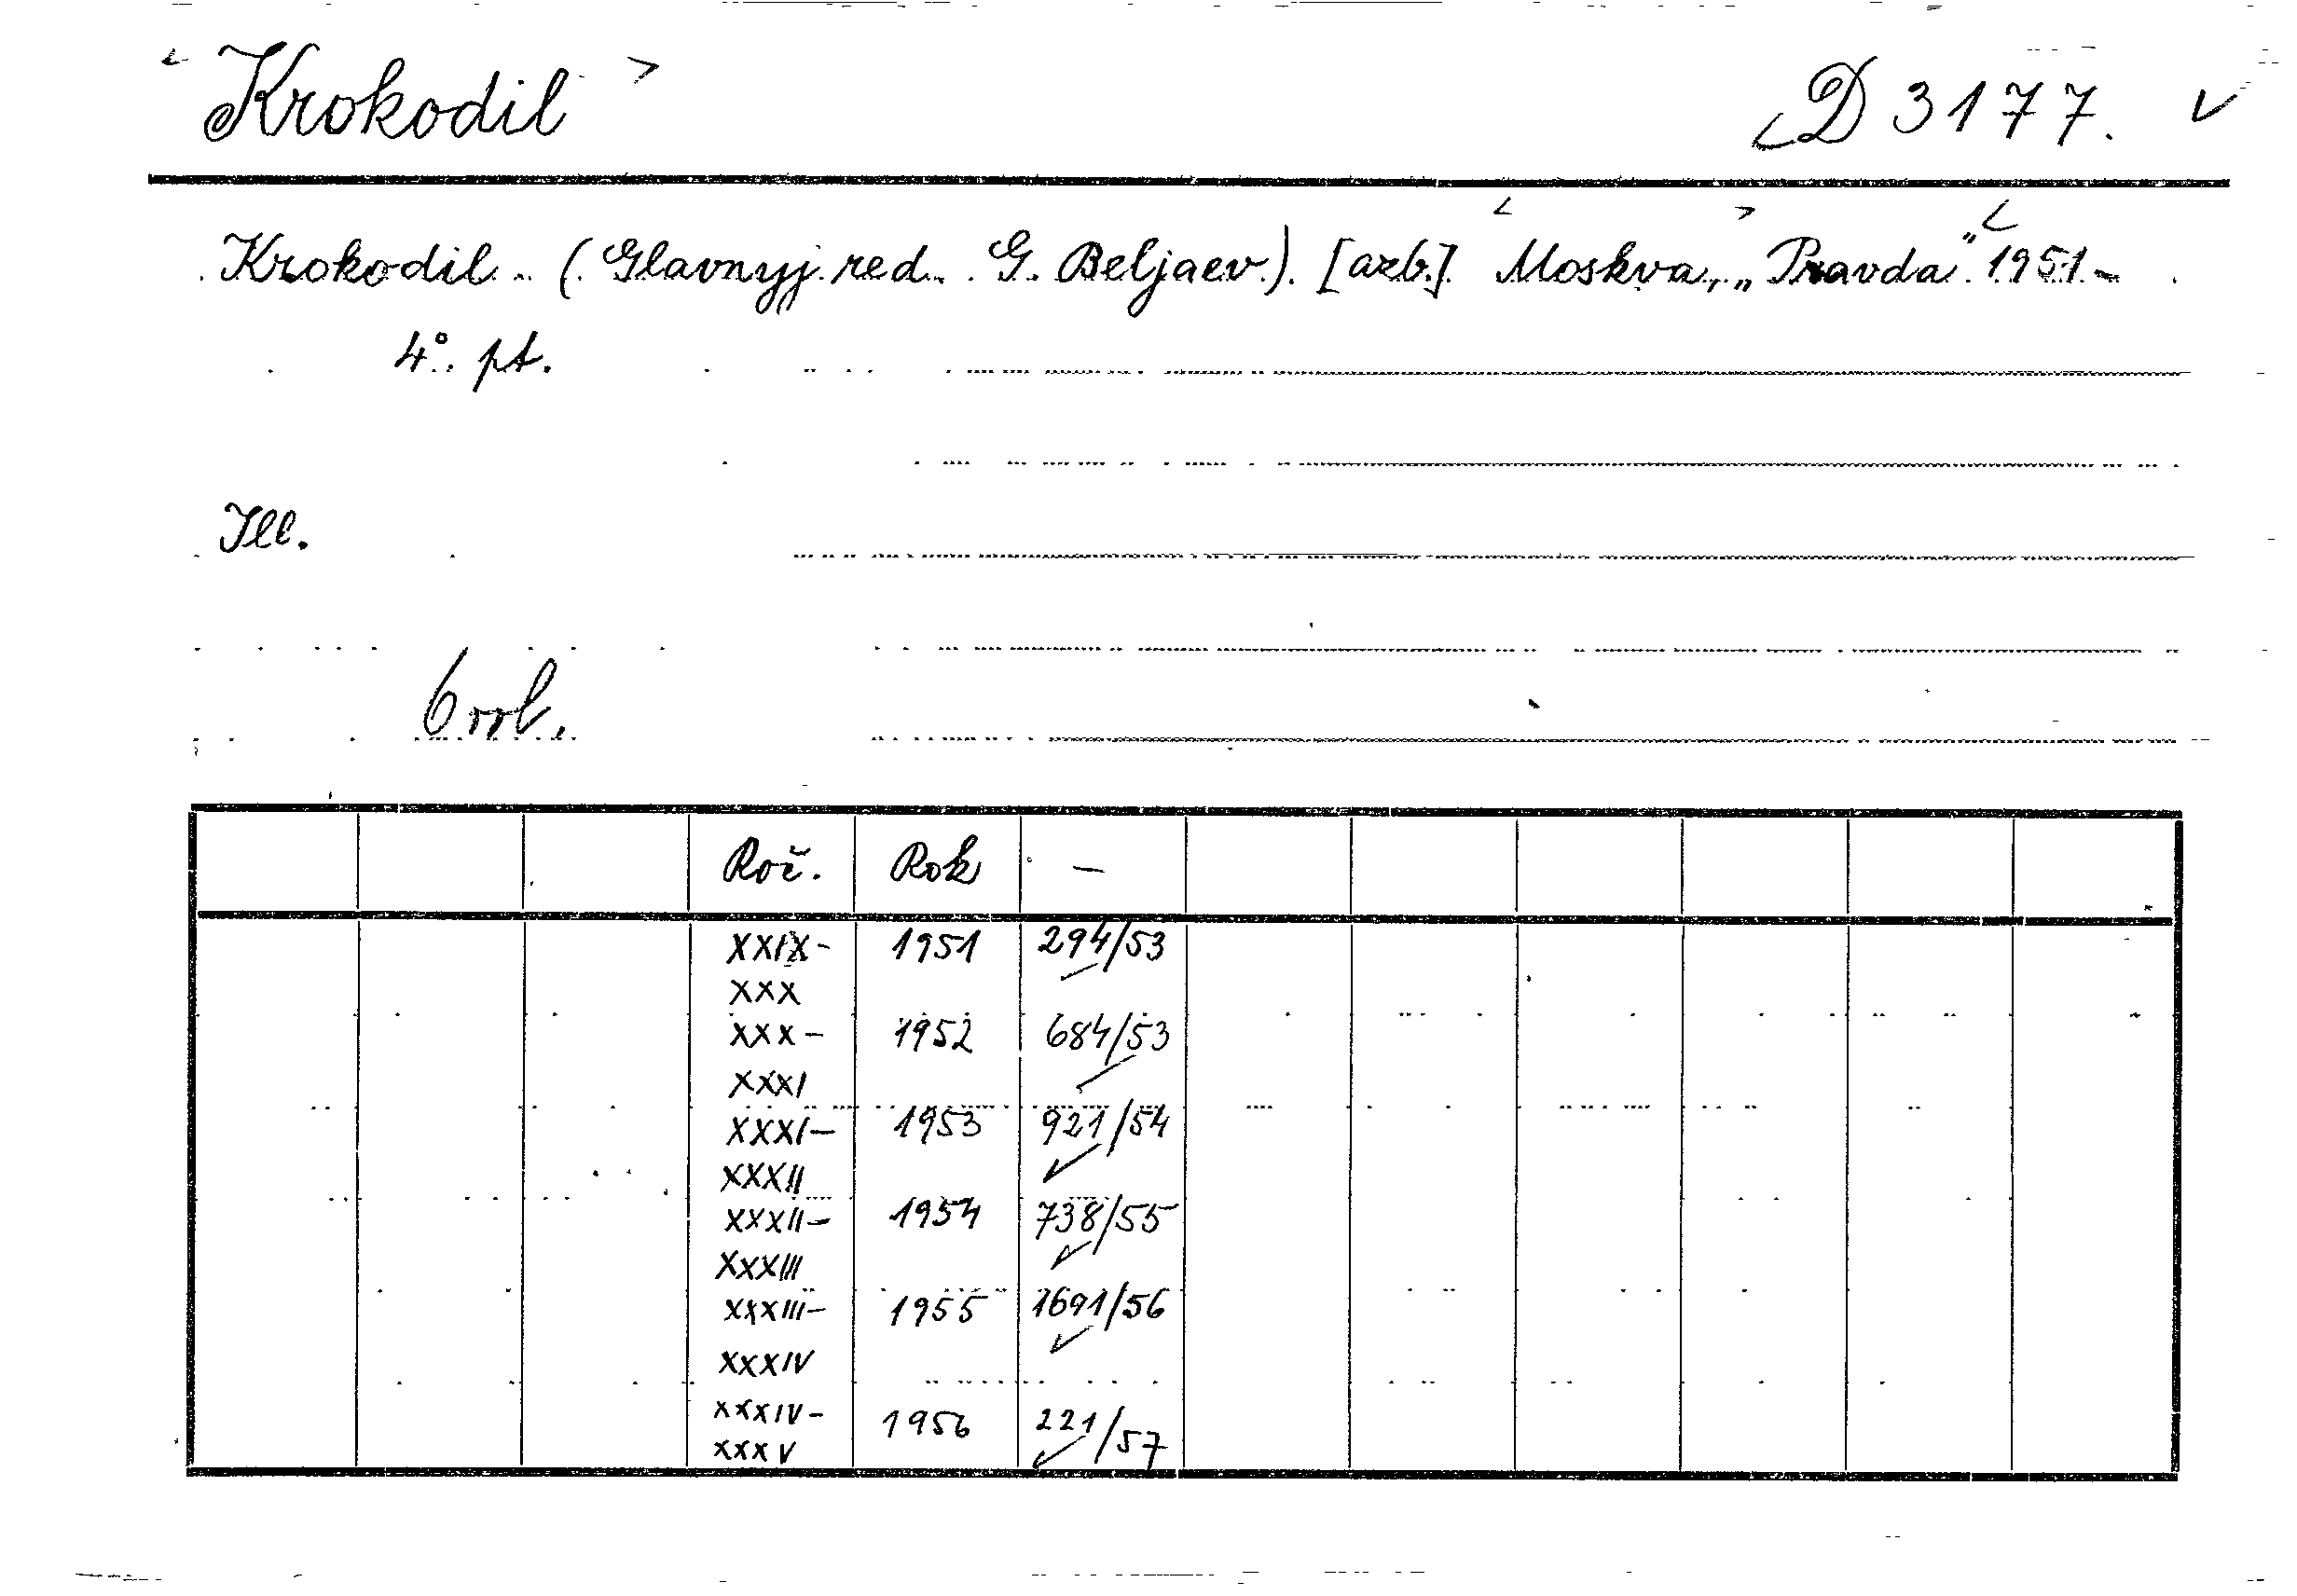 Krokodil D 3177.
Krokodil. (Glavnyj red. G. Beljaev.) [azb.] Moskva, „Pravda" 1951 -
4°. pt.
Ill.
Roč. Rok -
XXIX- 1951 294/53
XXX
XXX- 1952 684/53
XXXI
XXXI- 1953 921/54
XXXII
XXXII- 1954 738/55
XXXIII
XXXIII- 1955 1691/56
XXXIV
XXXIV- 1956 221/57
XXXV